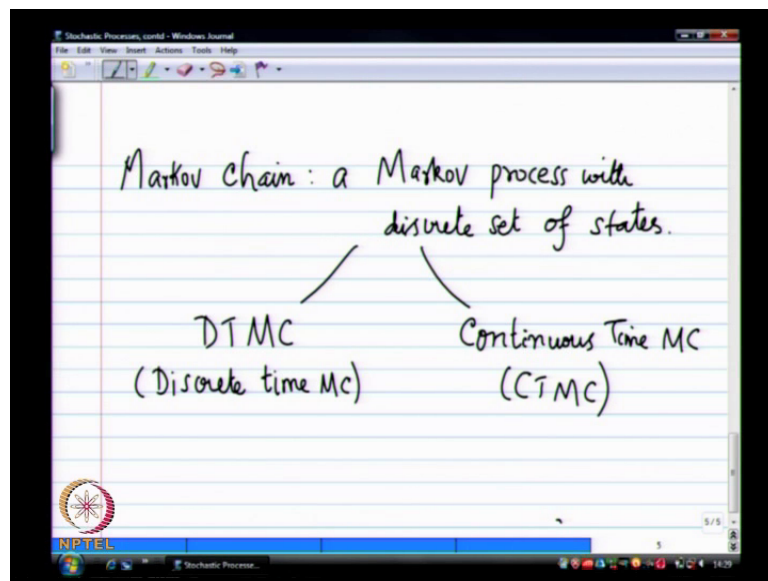 Stochastic Processes, contd - Windows Journal
File Edit View Insert Actions Tools Help
Markov Chain : a Markov process with
discrete set of states.
DTMC
(Discrete time MC)
Continuous Time MC
(CTMC)
NPTEL
5/5
5
Stochastic Processe...
14:29